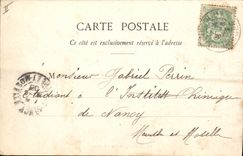 CARTE POSTALE
Ce côté est exclusivement réservé à l'adresse
Monsieur Gabriel Perrin
Etudiant à l'Institut Chimique
de Nancy
Meurthe et Moselle